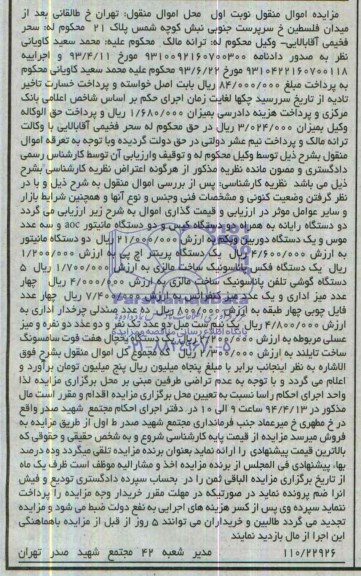 مزایده اموال منقول نوبت اول محل اموال منقول: تهران خ طالقانی بعد از
میدان فلسطین خ سرپرست جنوبی نبش کوچه شمس پلاک ۲۱ محکوم له: سحر
فخیمی آقابالایی– وکیل محکوم له: ترانه مالک محکوم علیه: محمد سعید کاویانی
نظر به صدور دادنامه ۹۳۱۰۰۹۲۱۶۰۷۰۰۳۰۰ مورخ ۹۳/۴/۱۱ و اجراییه
۹۳۱۰۴۲۲۱۶۰۷۰۰۱۱۸ مورخ ۹۳/۶/۲۲ محکوم علیه محمد سعید کاویانی محکوم
به پرداخت مبلغ ۸۴/۰۰۰/۰۰۰ ریال بابت اصل خواسته و پرداخت خسارت تاخیر
تادیه از تاریخ سررسید چکها لغایت زمان اجرای حکم بر اساس شاخص اعلامی بانک
مرکزی و پرداخت هزینه دادرسی بمیزان ۱/۶۸۰/۰۰۰ ریال و پرداخت حق الوکاله
وکیل بمیزان ۳/۰۲۴/۰۰۰ ریال در حق محکوم له سحر فخیمی آقابالایی با وکالت
ترانه مالک و پرداخت نیم عشر دولتی در حق دولت گردیده وبا توجه به تعرفه اموال
منقول بشرح ذیل توسط وکیل محکوم له و توقیف وارزیابی آن توسط کارشناس رسمی
دادگستری و مصون مانده نظریه مذکور از هرگونه اعتراض نظریه کارشناسی بشرح
ذیل می باشد نظریه کارشناسی: پس از بررسی اموال منقول به شرح ذیل و با در
نظر گرفتن وضعیت کنونی و مشخصات فنی وجنس و نوع آنها و همچنین شرایط بازار
و سایر عوامل موثر در ارزیابی و قیمت گذاری اموال به شرح زیر ارزیابی می گردد
دو دستگاه رایانه به همراه دو دستگاه کیس و دو دستگاه مانیتور aoc و سه عدد
موس و یک دستگاه دوربین وبکم به ارزش ۲۱/۰۰۰/۰۰۰ ریال دو دستگاه مانیتور
به ارزش ۴/۶۰۰/۰۰۰ ریال یک دستگاه پرینتر اچ پی به ارزش ۱/۲۰۰/۰۰۰
ریال یک دستگاه فکس پاناسونیک ساخت مالزی به ارزش ۱/۷۰۰/۰۰۰ ریال ۵
دستگاه گوشی تلفن پاناسونیک ساخت مالزی به ارزش ۴/۰۰۰/۰۰۰ ریال چهار
عدد میز اداری و یک عدد میز کنفرانس به ارزش ۷/۴۰۰/۰۰۰ ریال چهار عدد
فایل چوبی چهار طبقه به ارزش ۸۰۰/۰۰۰ ریال ده عدد صندلی چرخدار اداری به
ارزش ۴/۸۰۰/۰۰۰ ریال یک نیم ست مبل دو عدد تک نفر و دو عدد دو نفره و میز
عسلی مربوطه به ارزش ۲/۲۰۰/۰۰۰ ریال یک دستگاه یخچال هفت فوت سامسونگ
ساخت تایلند به ارزش ۲/۳۰۰/۰۰۰ ریال که مجموع کل اموال منقول بشرح فوق
الاشاره به نظر اینجانب برابر با مبلغ پنجاه میلیون ریال پنج میلیون تومان برآورد و
اعلام می گردد و با توجه به عدم تراضی طرفین مبنی بر محل برگزاری مزایده لذا
واحد اجرای احکام راسا نسبت به تعیین محل برگزاری مزایده اقدام و مقرر است مال
مذکور در ۹۴/۴/۱۳ ساعت ۹ الی ۱۰ در دفتر اجرای احکام مجتمع شهید صدر واقع
در خ مطهری خ میرعماد جنب فرمانداری مجتمع شهید صدر ط اول از طریق مزایده به
فروش میرسد مزایده از قیمت پایه کارشناسی شروع و به شخص حقیقی و حقوقی که
بالاترین قیمت پیشنهادی را ارائه نماید بعنوان برنده مزایده تلقی میگردد وده درصد
بها، پیشنهادی فی المجلس از برنده مزایده اخذ و مشارالیه موظف است ظرف یک ماه
از تاریخ برگزاری مزایده الباقی ثمن را در بحساب سپرده دادگستری تودیع و فیش
انرا ضم پرونده نماید در صورتیکه در مهلت مقرر خریدار وجه مزایده را پرداخت
ننماید سپرده وی پس از کسر هزینه های اجرایی به نفع دولت ضبط می شود و مزایده
تجدید می گردد طالبین و خریداران می توانند ۵ روز از قبل از مزایده باهماهنگی
این اجرا از مال بازدید نمایند
۱۱۰/۲۲۹۲۶ مدیر شعبه ۴۲ مجتمع شهید صدر تهران